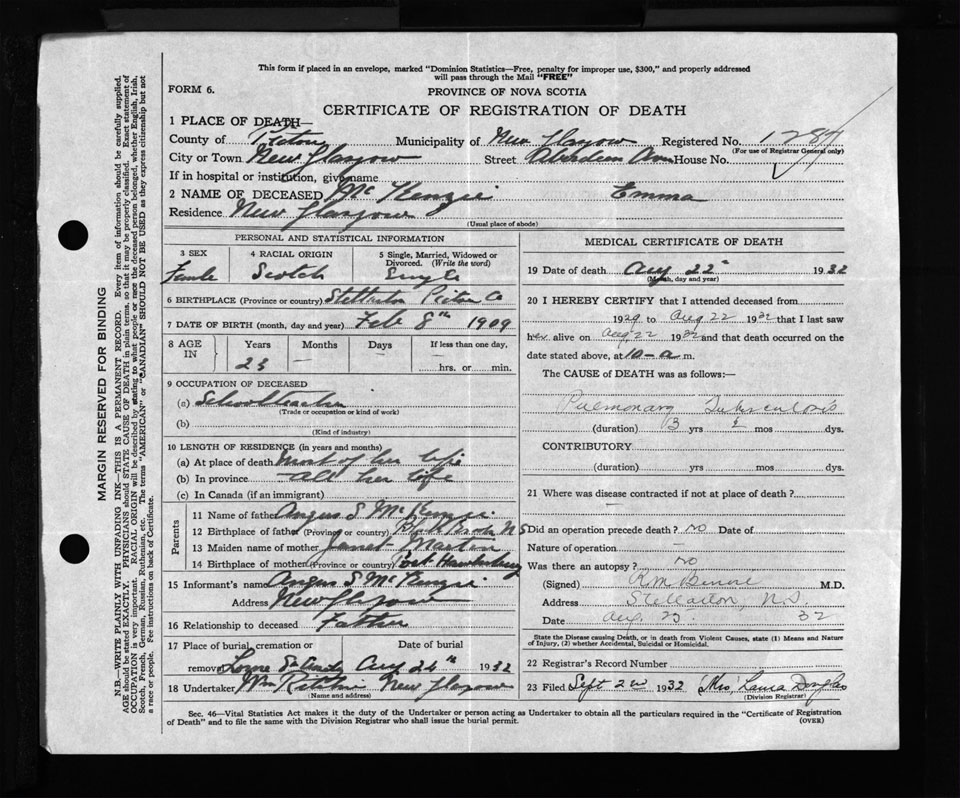 This form if placed in an envelope, marked "Dominion Statistics—Free, penalty for improper use, $300," and properly addressed
will pass through the Mail "FREE"
FORM 6.
PROVINCE OF NOVA SCOTIA
CERTIFICATE OF REGISTRATION OF DEATH
1 PLACE OF DEATH—
County of Pictou Municipality of New Glasgow Registered No.
(For use of Registrar General only)
City or Town New Glasgow Street Aberdeen Ave House No.
If in hospital or institution, give name
2 NAME OF DECEASED McKenzie Emma
Residence New Glasgow
(Usual place of abode)
PERSONAL AND STATISTICAL INFORMATION
3 SEX 4 RACIAL ORIGIN 5 Single, Married, Widowed or Divorced. (Write the word)
Female Scotch Single
6 BIRTHPLACE (Province or country) Stellarton Pictou Co
7 DATE OF BIRTH (month, day and year) Feb 8th 1909
8 AGE IN Years Months Days If less than one day,
23 — — hrs. or min.
9 OCCUPATION OF DECEASED
(a) Schoolteacher
(Trade or occupation or kind of work)
(b)
(Kind of industry)
10 LENGTH OF RESIDENCE (in years and months)
(a) At place of death most of her life
(b) In province all her life
(c) In Canada (if an immigrant)
Parents
11 Name of father Angus S McKenzie
12 Birthplace of father (Province or country) Brook N S
13 Maiden name of mother Janet Martin
14 Birthplace of mother (Province or country) Port Hawkesbury
15 Informant's name Angus S McKenzie
Address New Glasgow
16 Relationship to deceased Father
17 Place of burial, cremation or removal Date of burial
Lorne St Aug 24th 1932
18 Undertaker Wm Ritchie New Glasgow
(Name and address)
MEDICAL CERTIFICATE OF DEATH
19 Date of death Aug 22" 1932
(Month, day and year)
20 I HEREBY CERTIFY that I attended deceased from
1929 to Aug 22 1932 that I last saw
her alive on Aug 22 1932 and that death occurred on the
date stated above, at 10-a m.
The CAUSE of DEATH was as follows:—
Pulmonary Tuberculosis
(duration) 3 yrs mos dys.
CONTRIBUTORY
(duration) yrs mos dys.
21 Where was disease contracted if not at place of death?
—
Did an operation precede death? no Date of
Nature of operation —
Was there an autopsy? no
(Signed) M.D.
Address Stellarton, N.S.
Date Aug. 25. 32
State the Disease causing Death, or in death from Violent Causes, state (1) Means and Nature
of Injury, (2) whether Accidental, Suicidal or Homicidal.
22 Registrar's Record Number
23 Filed Sept 2nd 1932 Mrs Laura Douglas
(Division Registrar)
Sec. 46—Vital Statistics Act makes it the duty of the Undertaker or person acting as Undertaker to obtain all the particulars required in the "Certificate of Registration
of Death" and to file the same with the Division Registrar who shall issue the burial permit.
(OVER)
MARGIN RESERVED FOR BINDING
N.B.—WRITE PLAINLY WITH UNFADING INK—THIS IS A PERMANENT RECORD. Every item of information should be carefully supplied.
AGE should be stated EXACTLY. PHYSICIANS should STATE CAUSE OF DEATH in plain terms, so that it may be properly classified. Exact statement of
OCCUPATION is very important. RACIAL ORIGIN will be described by stating to what people or race the deceased person belonged, whether English, Irish,
Scotch, French, German, Russian, Ruthenian, etc. The terms "AMERICAN" or "CANADIAN" SHOULD NOT BE USED as they express citizenship but not
a race or people. Fee instructions on back of Certificate.